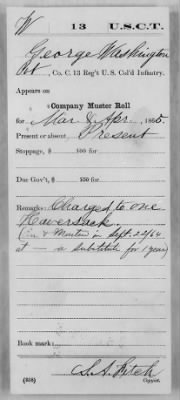 W 13 U.S.C.T.
George Washington
Pvt, Co. C, 13 Reg't U. S. Col'd Infantry.
Appears on
Company Muster Roll
for Mar & Apr, 1865.
Present or absent Present
Stoppage, $ 100 for
Due Gov't, $ 100 for
Remarks: Charged to one
Haversack.
in Sept. 22/64
at — a substitute for 1 year)
Book mark:
S. A. Fitch
(358) Copyist.